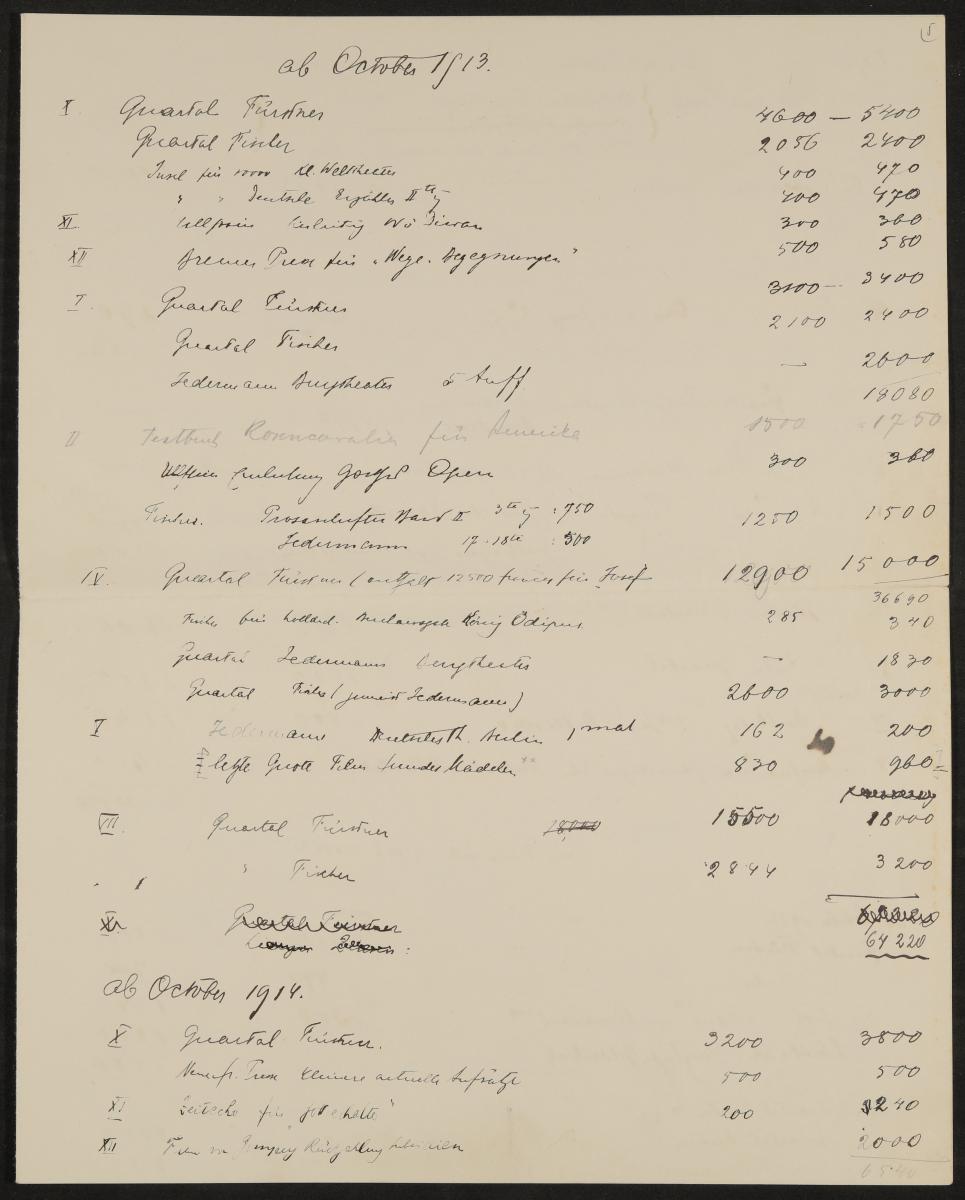 5
ab October 1913.
X. Quartal Fürstner 4600 — 5400
Quartal Fischer 2056 2400
Insel für 10000 kl. Welttheater 400 470
" " Deutsche Erzähler II te 400 470
XI. Einleitung 300 360
XII Bremer Presse für „Wege u. Begegnungen" 500 580
I. Quartal Fürstner 3100 — 3400
Quartal Fischer 2100 2400
Jedermann Burgtheater 5 Auff. — 2600
18080
II Textbuch Rosencavalier für Amerika 1500 1750
Ullstein Einleitung Oper 300 360
Fischer. Prosaschriften Band II 3te : 750 1250 1500
Jedermann 17.18te : 500
IV. Quartal Fürstner (enthält 12500 francs für Josef 12900 15000
36690
Fischer König Ödipus 285 340
Quartal Jedermann Burgtheater — 1830
Quartal Fischer (zumeist Jedermann) 2600 3000
V Jedermann Deutsches Th. Berlin 1 mal 162 200
letzte Quote Film fremdes Mädchen 830 960
VII. Quartal Fürstner 18000 15500 18000
" Fischer 2844 3200
XI. Quartal Fürstner
64220
ab October 1914.
X Quartal Fürstner. 3200 3800
Neue fr. Presse kleinere actuelle Aufsätze 500 500
XI 200 240
XII Film 2000
6540